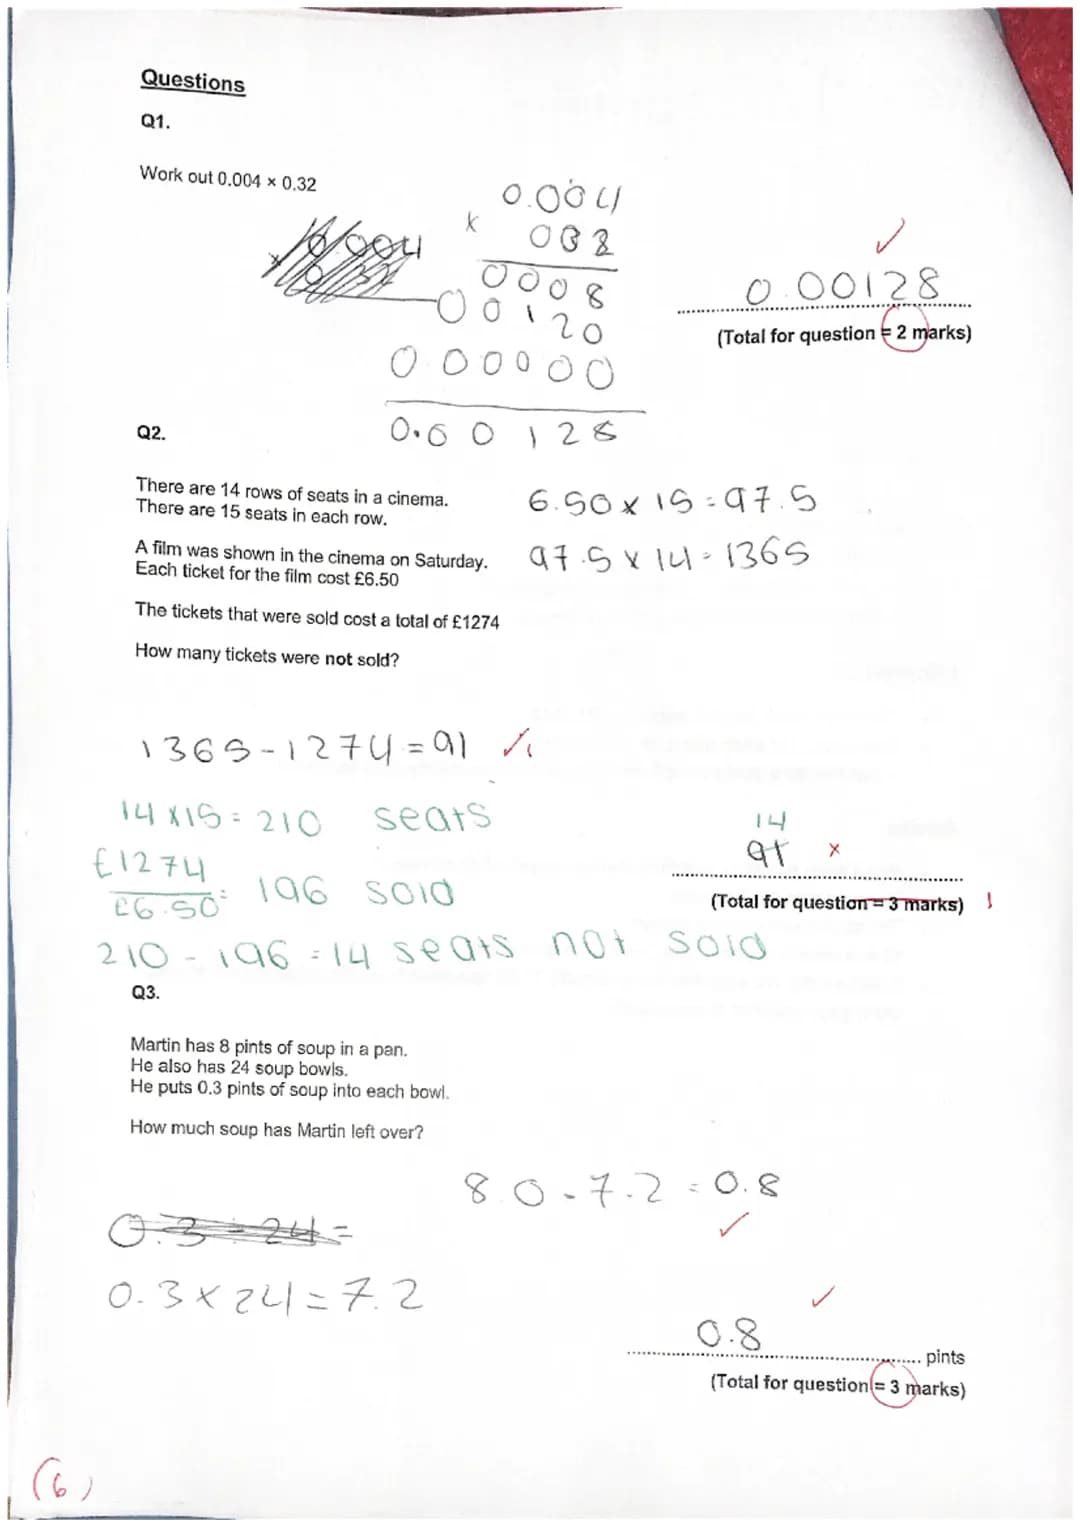 Questions
Q1.
Work out 0.004 × 0.32
0.004
× 032
0008
00120
0.00000
0.00128
0.004
✓
0.00128
(Total for question = 2 marks)
Q2.
There are 14 rows of seats in a cinema.
There are 15 seats in each row.
6.50 × 15 = 97.5
A film was shown in the cinema on Saturday.
Each ticket for the film cost £6.50
97.5 × 14 = 1365
The tickets that were sold cost a total of £1274
How many tickets were not sold?
1365 - 1274 = 91 ✓1
14 × 15 = 210 seats
£1274
£6.50 = 196 sold
210 - 196 = 14 seats not sold
14
91 ×
(Total for question = 3 marks) 1
Q3.
Martin has 8 pints of soup in a pan.
He also has 24 soup bowls.
He puts 0.3 pints of soup into each bowl.
How much soup has Martin left over?
8.0 - 7.2 = 0.8
✓
0.3 - 24 =
0.3 × 24 = 7.2
✓
0.8
pints
(Total for question = 3 marks)
(6)